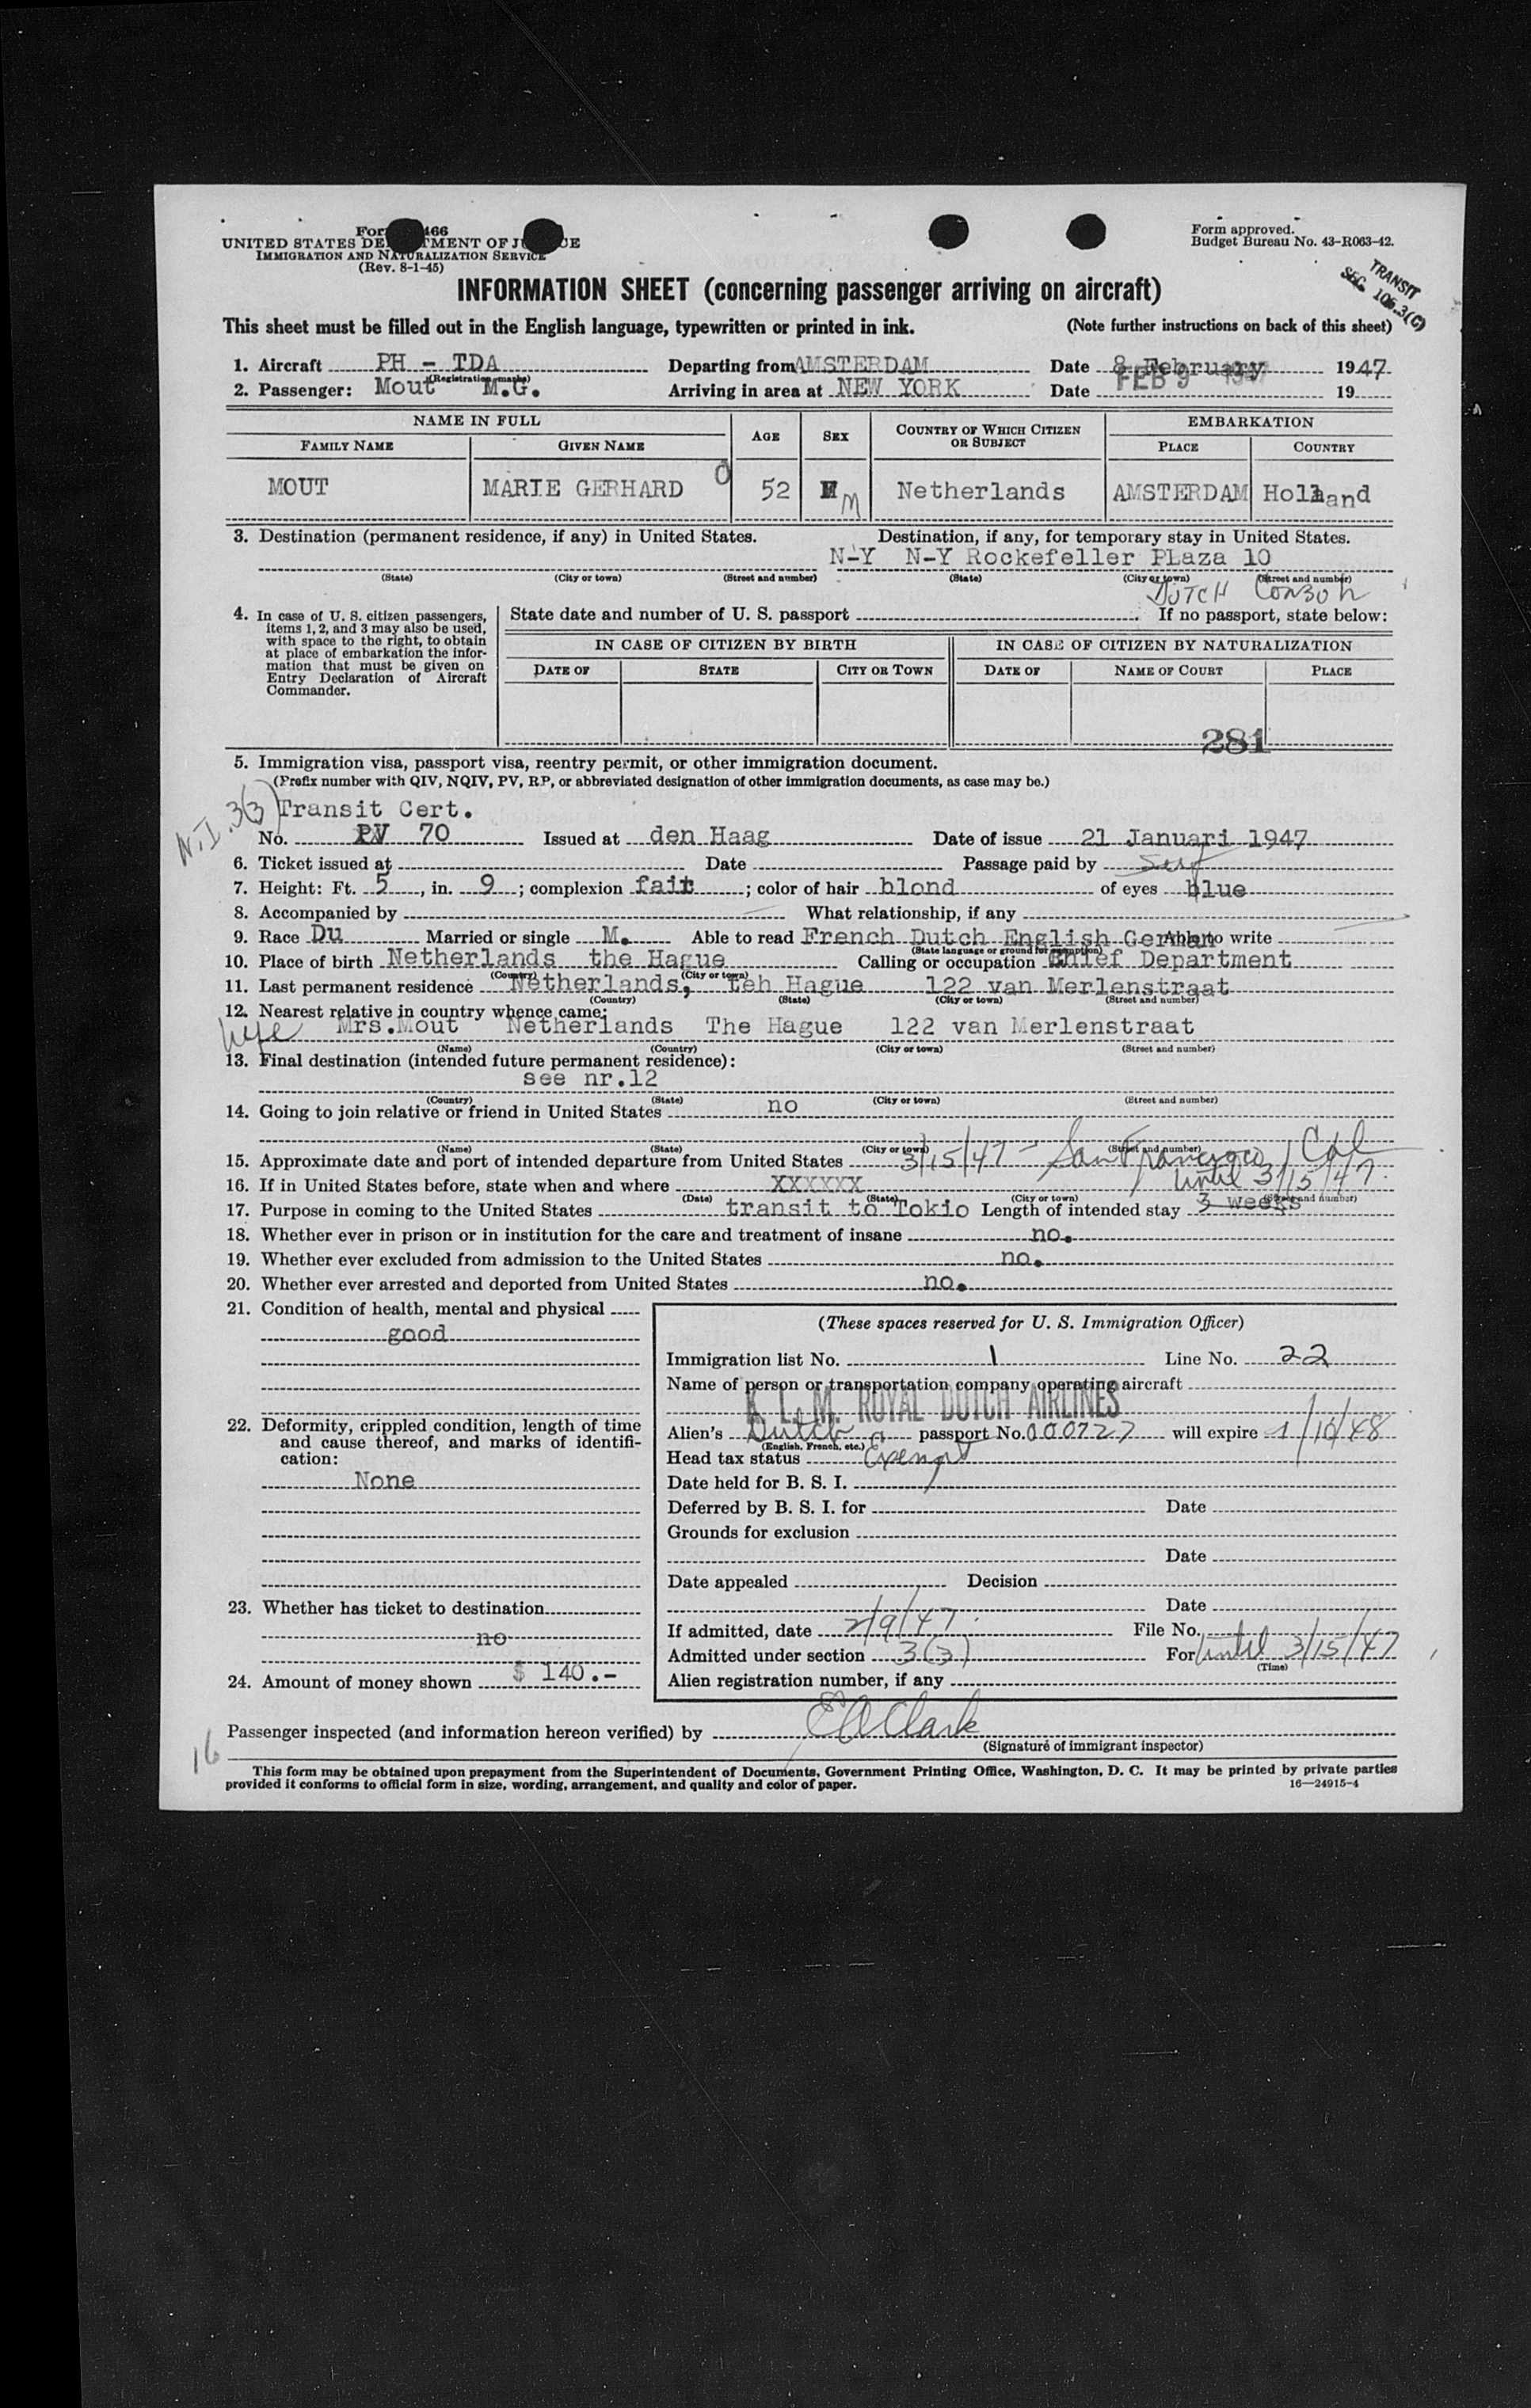 Form 466
UNITED STATES DEPARTMENT OF JUSTICE
IMMIGRATION AND NATURALIZATION SERVICE
(Rev. 8-1-45)
Form approved.
Budget Bureau No. 43-R063-42.
TRANSIT
SEC. 106.3(C)
INFORMATION SHEET (concerning passenger arriving on aircraft)
This sheet must be filled out in the English language, typewritten or printed in ink. (Note further instructions on back of this sheet)
1. Aircraft PH - TDA Departing from AMSTERDAM Date 8 February 1947
(Registration marks)
2. Passenger: Mout M.G. Arriving in area at NEW YORK Date FEB 9 1947 19
NAME IN FULL AGE SEX COUNTRY OF WHICH CITIZEN OR SUBJECT EMBARKATION
FAMILY NAME GIVEN NAME PLACE COUNTRY
MOUT MARIE GERHARD O 52 M Netherlands AMSTERDAM Holland
3. Destination (permanent residence, if any) in United States. Destination, if any, for temporary stay in United States.
N-Y N-Y Rockefeller PLaza 10
(State) (City or town) (Street and number) (State) (City or town) (Street and number)
DUTCH
4. In case of U. S. citizen passengers, items 1, 2, and 3 may also be used, with space to the right, to obtain at place of embarkation the information that must be given on Entry Declaration of Aircraft Commander.
State date and number of U. S. passport If no passport, state below:
IN CASE OF CITIZEN BY BIRTH IN CASE OF CITIZEN BY NATURALIZATION
DATE OF STATE CITY OR TOWN DATE OF NAME OF COURT PLACE
281
5. Immigration visa, passport visa, reentry permit, or other immigration document.
(Prefix number with QIV, NQIV, PV, RP, or abbreviated designation of other immigration documents, as case may be.)
N.I. 3(3) Transit Cert.
No. PV 70 Issued at den Haag Date of issue 21 Januari 1947
6. Ticket issued at Date Passage paid by self
7. Height: Ft. 5, in. 9; complexion fair; color of hair blond of eyes blue
8. Accompanied by What relationship, if any
9. Race Du Married or single M. Able to read French Dutch English German Able to write
(State language or ground for exemption)
10. Place of birth Netherlands the Hague Calling or occupation Chief Department
(Country) (City or town)
11. Last permanent residence Netherlands, teh Hague 122 van Merlenstraat
(Country) (State) (City or town) (Street and number)
12. Nearest relative in country whence came:
wife Mrs.Mout Netherlands The Hague 122 van Merlenstraat
(Name) (Country) (City or town) (Street and number)
13. Final destination (intended future permanent residence):
see nr.12
(Country) (State) (City or town) (Street and number)
14. Going to join relative or friend in United States no
(Name) (State) (City or town) (Street and number)
15. Approximate date and port of intended departure from United States 3/15/47 - San Francisco, Cal
16. If in United States before, state when and where XXXXXX until 3/15/47.
(Date) (State) (City or town) (Street and number)
17. Purpose in coming to the United States transit to Tokio Length of intended stay 3 weeks
18. Whether ever in prison or in institution for the care and treatment of insane no.
19. Whether ever excluded from admission to the United States no.
20. Whether ever arrested and deported from United States no.
21. Condition of health, mental and physical
good
22. Deformity, crippled condition, length of time and cause thereof, and marks of identification:
None
23. Whether has ticket to destination
no
24. Amount of money shown $ 140.-
(These spaces reserved for U. S. Immigration Officer)
Immigration list No. 1 Line No. 22
Name of person or transportation company operating aircraft
K L. M. ROYAL DUTCH AIRLINES
Alien's Dutch passport No. 000727 will expire 1/10/48
(English, French, etc.)
Head tax status Exempt
Date held for B. S. I.
Deferred by B. S. I. for Date
Grounds for exclusion
Date
Date appealed Decision
Date
If admitted, date 2/9/47. File No.
Admitted under section 3(3) For until 3/15/47
(Time)
Alien registration number, if any
Passenger inspected (and information hereon verified) by E A Clark
(Signature of immigrant inspector)
16
This form may be obtained upon prepayment from the Superintendent of Documents, Government Printing Office, Washington, D. C. It may be printed by private parties
provided it conforms to official form in size, wording, arrangement, and quality and color of paper. 16—24915-4